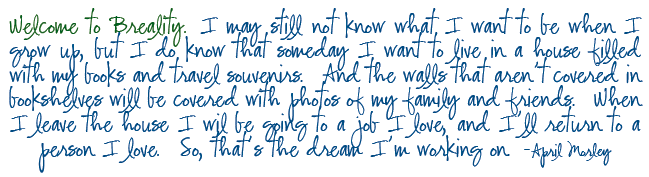 Welcome to Breality. I may still not know what I want to be when I
grow up, but I do know that someday I want to live in a house filled
with my books and travel souvenirs. And the walls that aren't covered in
bookshelves will be covered with photos of my family and friends. When
I leave the house I will be going to a job I love, and I'll return to a
person I love. So, that's the dream I'm working on -April Mosley